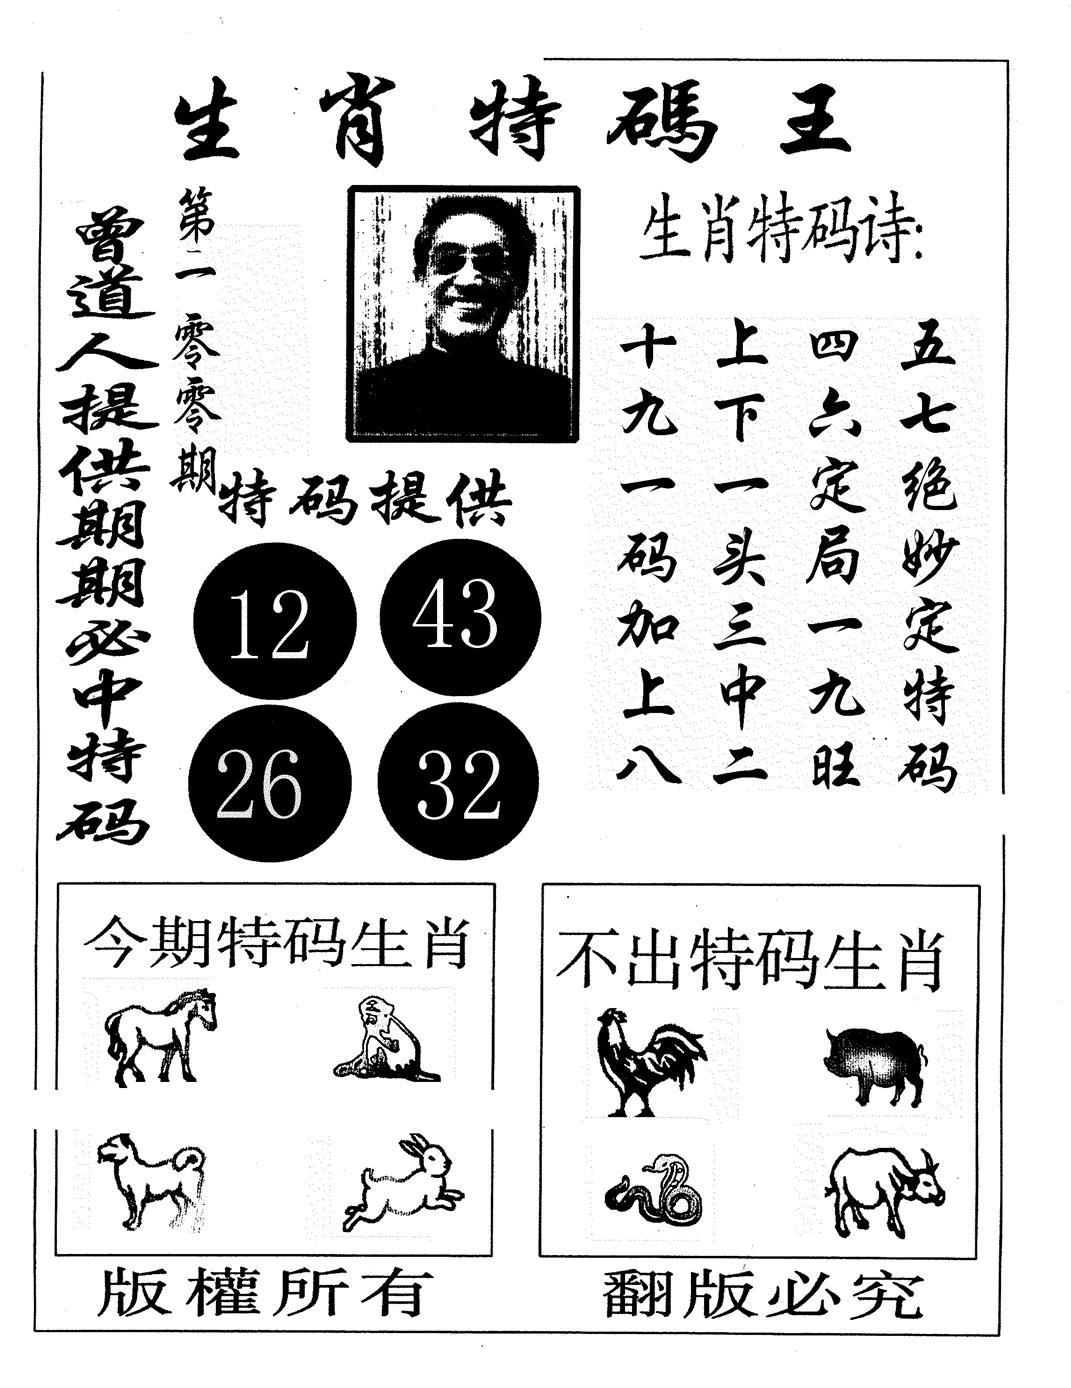 生肖特碼王
曾道人提供期期必中特码
第二一零零期
生肖特码诗:
五七绝妙定特码
四六定局一九旺
上下一头三中二
十九一码加上八
特码提供
12 43
26 32
今期特码生肖
不出特码生肖
版權所有
翻版必究